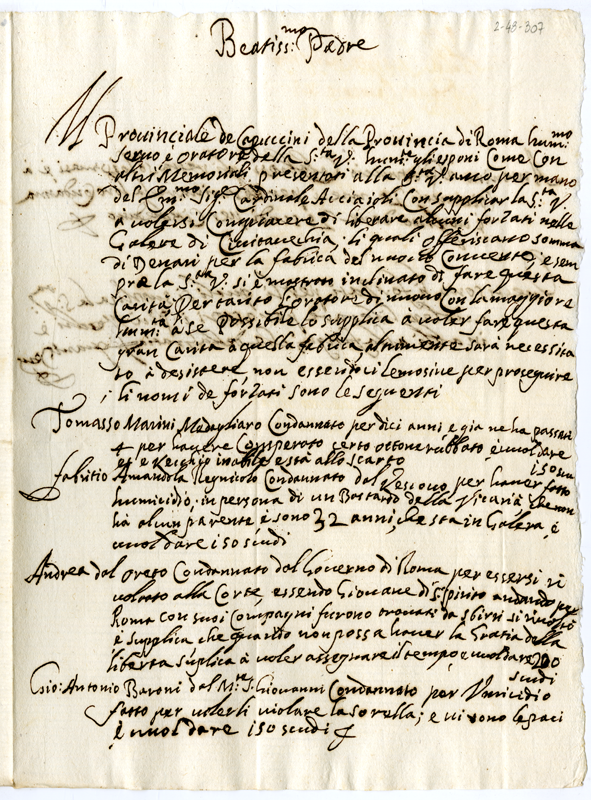 2-48-307
Beatiss: mo Padre
Il Provinciale de Capuccini della Provincia di Roma hum: mo
servo è Oratore della S.ta V. hum: te gli esponi Come Con
altri Memoriali presentati alla S.ta V. anco per mano
del Em: mo Sig.r Cardinale Acciaioli Con supplicar la S.ta V.
a volersi Compiacere di liberare alcuni forzati nelle
Galere di Civitavechia, li quali Offeriscano somma
di Denari per la fabrica del nuovo Convento, e sem
pre la S.ta V. si è mostrato inclinato di fare questa
Carità, Pertanto l'oratore di nuovo Con la maggiore
humi.tà à se possibile lo supplica à voler fare questa
gran Carita à quella fabrica, altrimente sarà necessita
to à desistere non essendoci lemosine per proseguire
; li nomi de forzati sono le seguenti
Tomasso Marini Condannato per dieci anni, e gia ne ha passati
4 per havere Comperato certo ottone rubbato, è vuol dare
et è vecchio inabile e sta allo scarto 150 scu
fabritio Amandola Regnicolo Condannato dal Vescovo per haver fatto
humicidio, in persona di un Bastardo della Vicaria che non
hà alcun parente è sono 32 anni, che sta in Galera, è
vuol dare 150 scudi
Andrea dal Oreto Condannato dal Governo di Roma per essersi ri
voltato alla Corte, essendo Giovane di S. Spirito andando per
Roma con suoi Compagni furono trovati da sbirri si rivoltò
è supplica che quando non possa haver la Gratia della
liberta suplica à voler assegnare il tempo, e vuol dare 200
scudi
Gio: Antonio Baroni dal M.te S. Giovanni Condannato per Umicidio
fatto per volerli violare la sorella; e vi sono le paci
è vuol dare 150 scudi